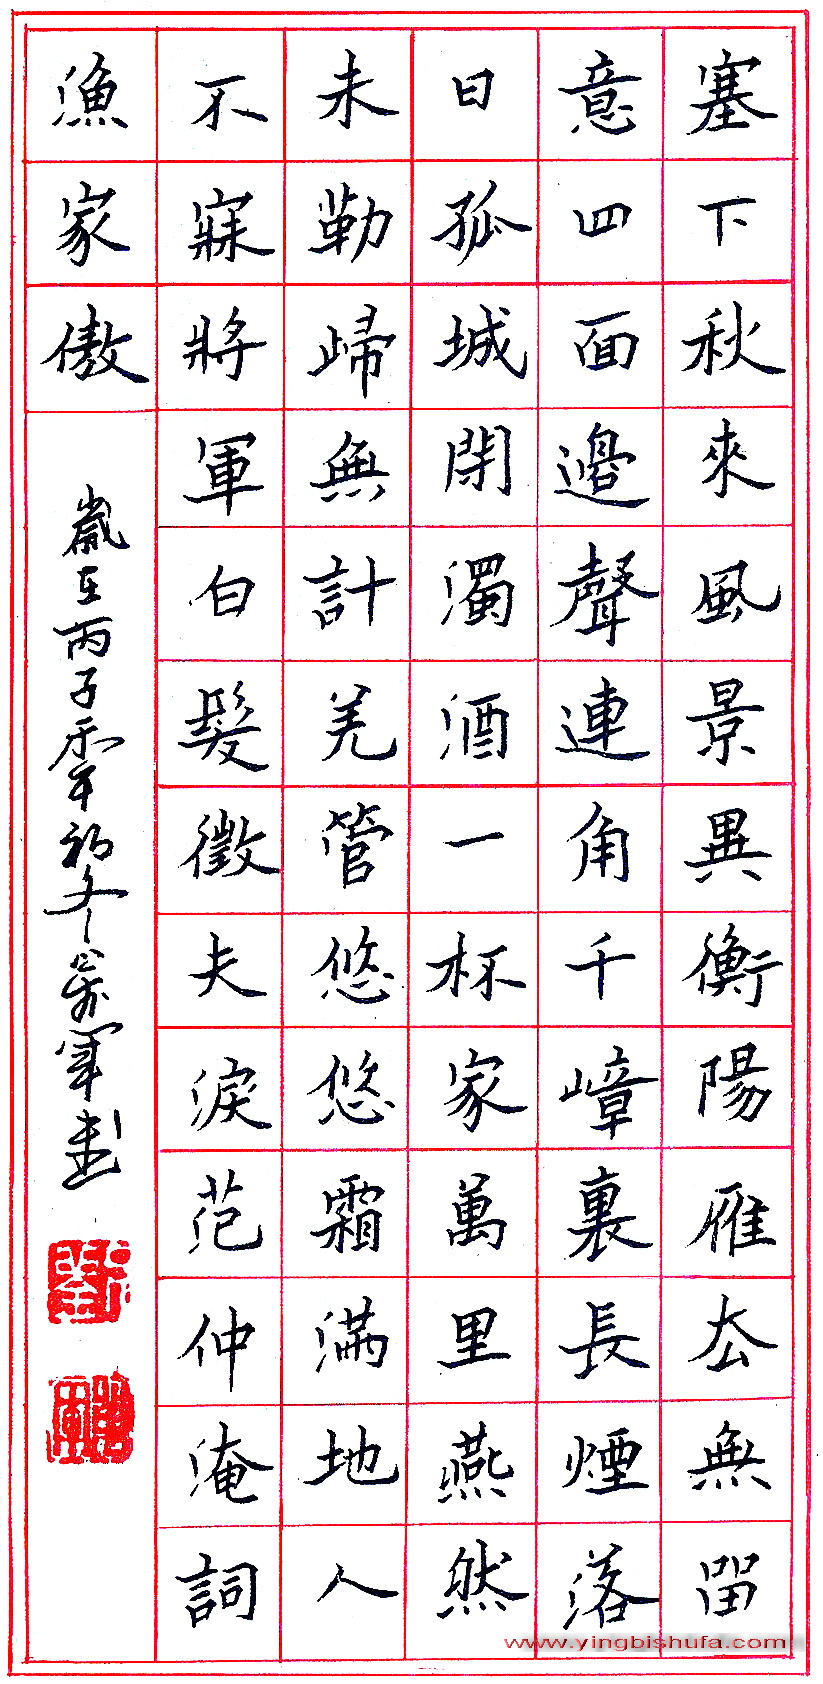 塞下秋來風景異衡陽雁去無留
意四面邊聲連角千嶂裏長煙落
日孤城閉濁酒一杯家萬里燕然
未勒歸無計羌管悠悠霜滿地人
不寐將軍白髮徵夫淚范仲淹詞
漁家傲
歲在丙子年初冬軍書
www.yingbishufa.com